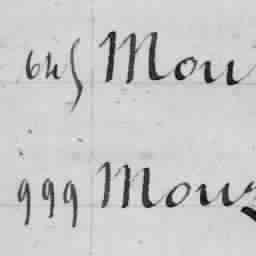 645 Mou
999 Mous